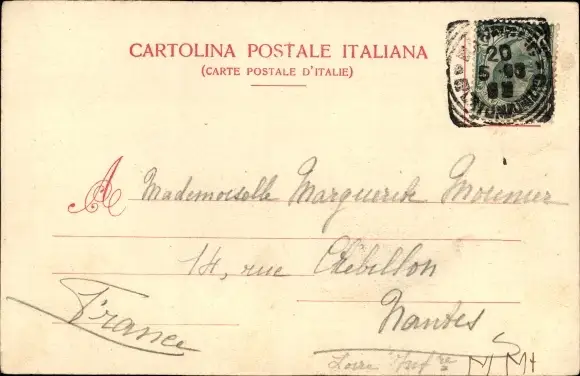 CARTOLINA POSTALE ITALIANA
(CARTE POSTALE D'ITALIE)
20
A Mademoiselle Marguerite Mounier
14, rue Crébillon
Nantes
France
Loire Infre